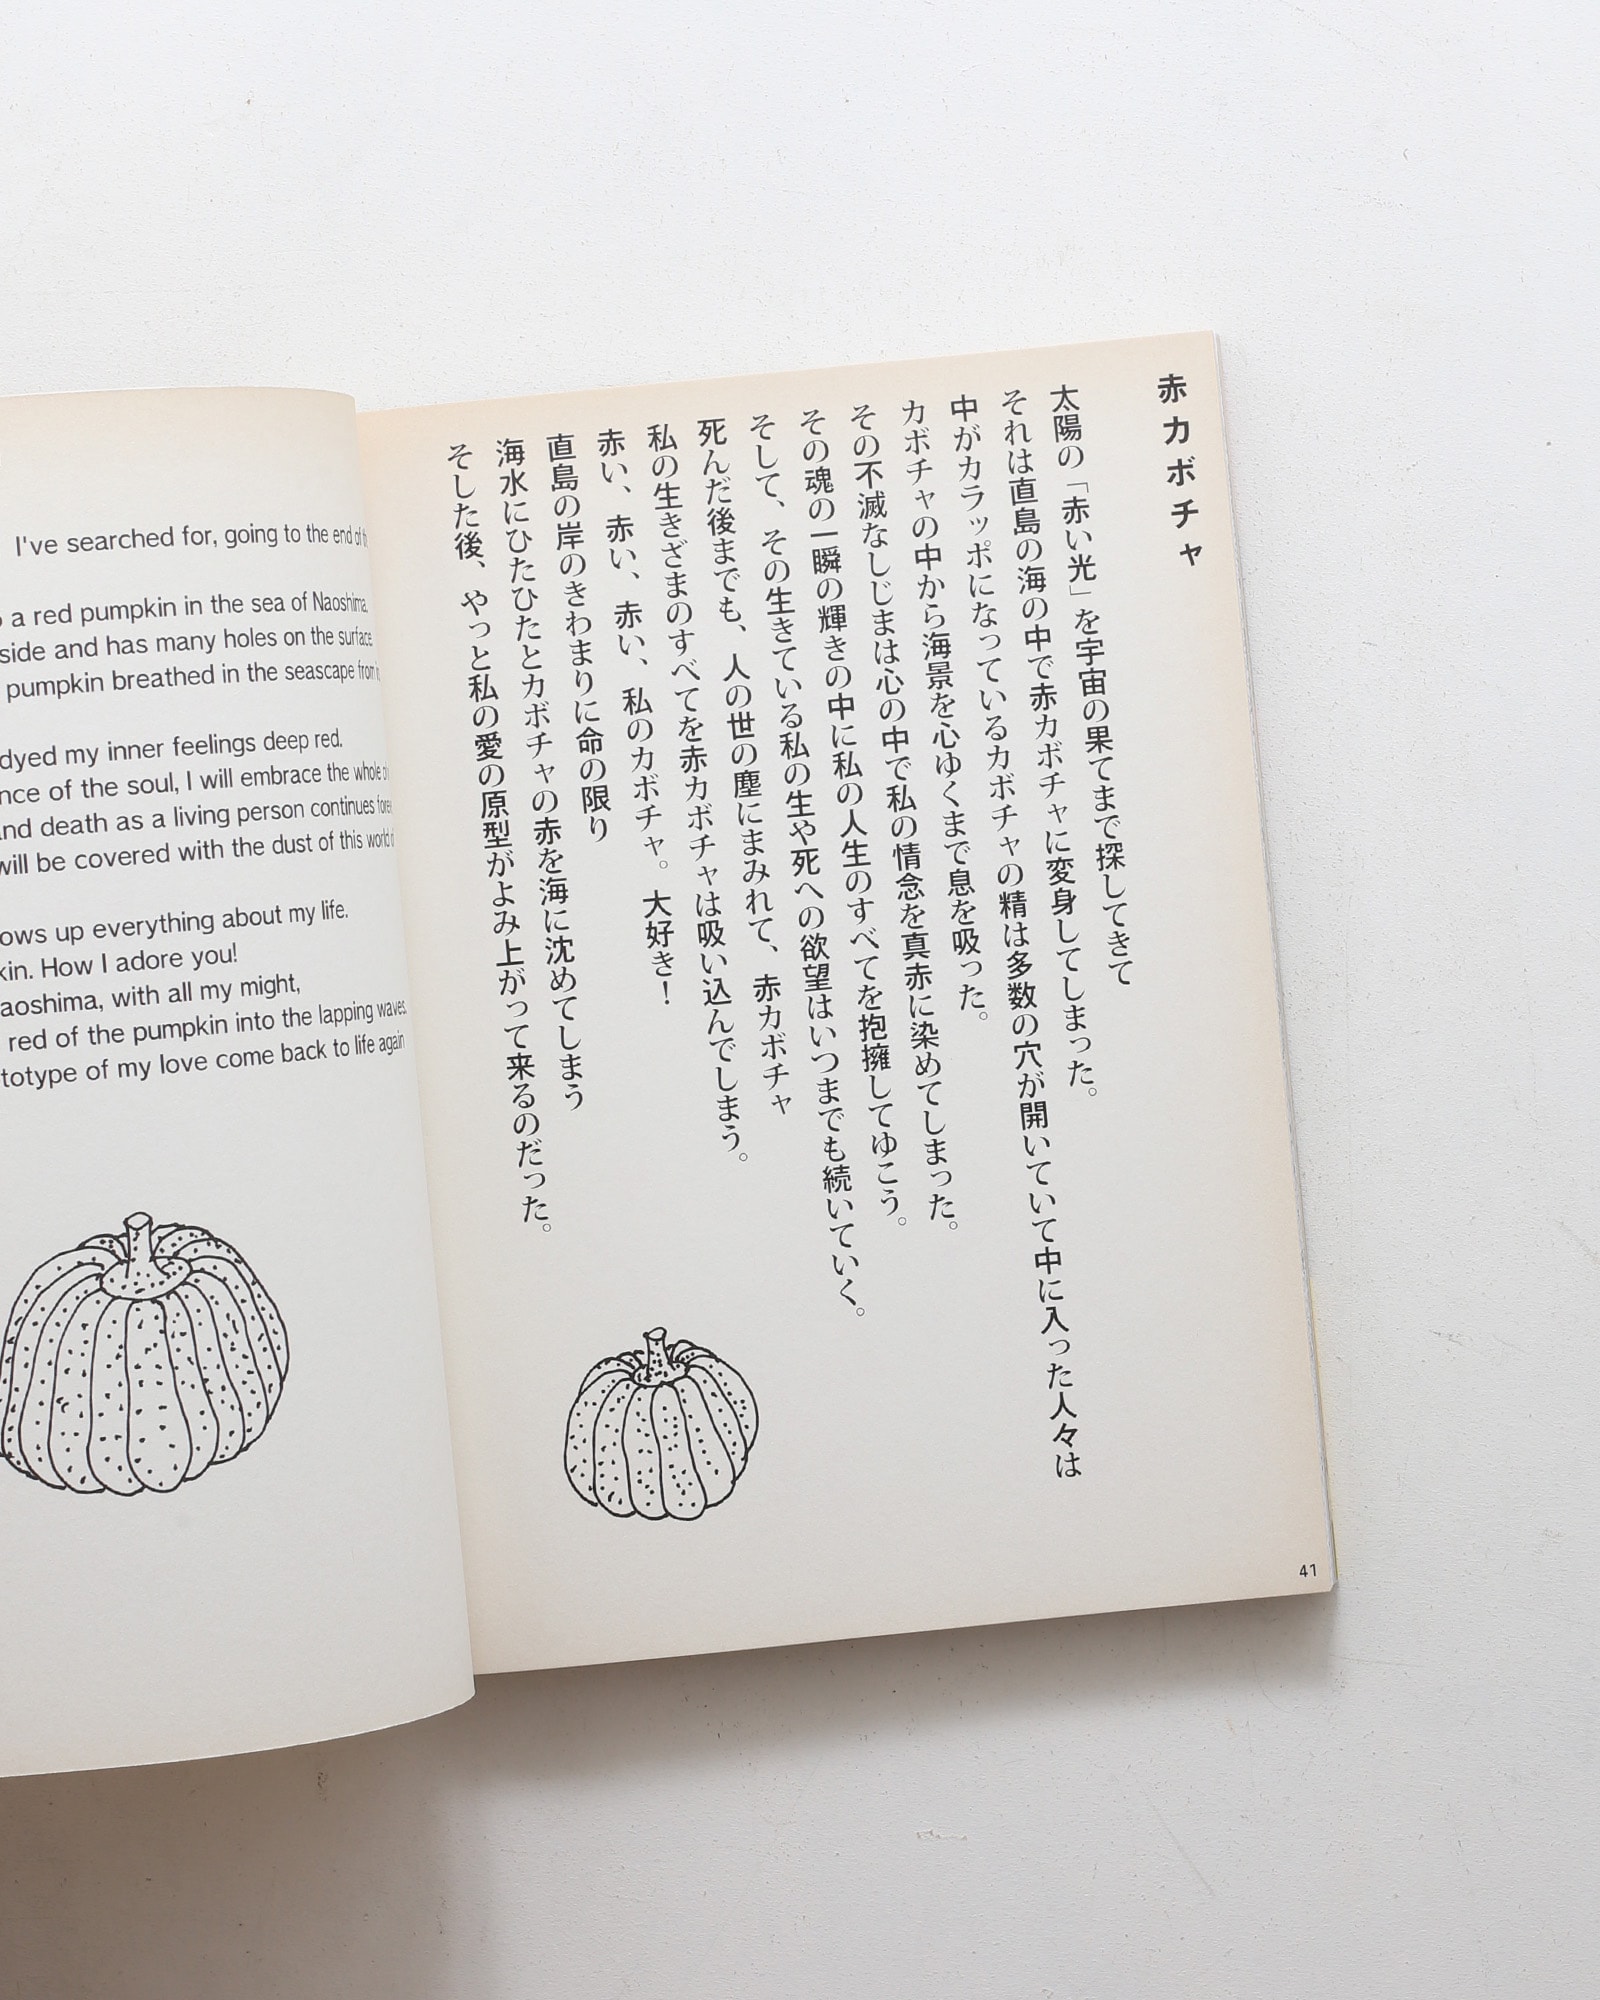 I've searched for, going to the end of
a red pumpkin in the sea of Naoshima.
side and has many holes on the surface.
pumpkin breathed in the seascape from
dyed my inner feelings deep red.
nce of the soul, I will embrace the whole
and death as a living person continues
will be covered with the dust of this world
ows up everything about my life.
kin. How I adore you!
aoshima, with all my might,
red of the pumpkin into the lapping waves.
totype of my love come back to life again
赤カボチャ
太陽の「赤い光」を宇宙の果てまで探してきて
それは直島の海の中で赤カボチャに変身してしまった。
中がカラッポになっているカボチャの精は多数の穴が開いていて中に入った人々は
カボチャの中から海景を心ゆくまで息を吸った。
その不滅なしじまは心の中で私の情念を真赤に染めてしまった。
その魂の一瞬の輝きの中に私の人生のすべてを抱擁してゆこう。
そして、その生きている私の生や死への欲望はいつまでも続いていく。
死んだ後までも、人の世の塵にまみれて、赤カボチャ
私の生きざまのすべてを赤カボチャは吸い込んでしまう。
赤い、赤い、赤い、私のカボチャ。大好き！
直島の岸のきわまりに命の限り
海水にひたひたとカボチャの赤を海に沈めてしまう
そした後、やっと私の愛の原型がよみ上がって来るのだった。
41